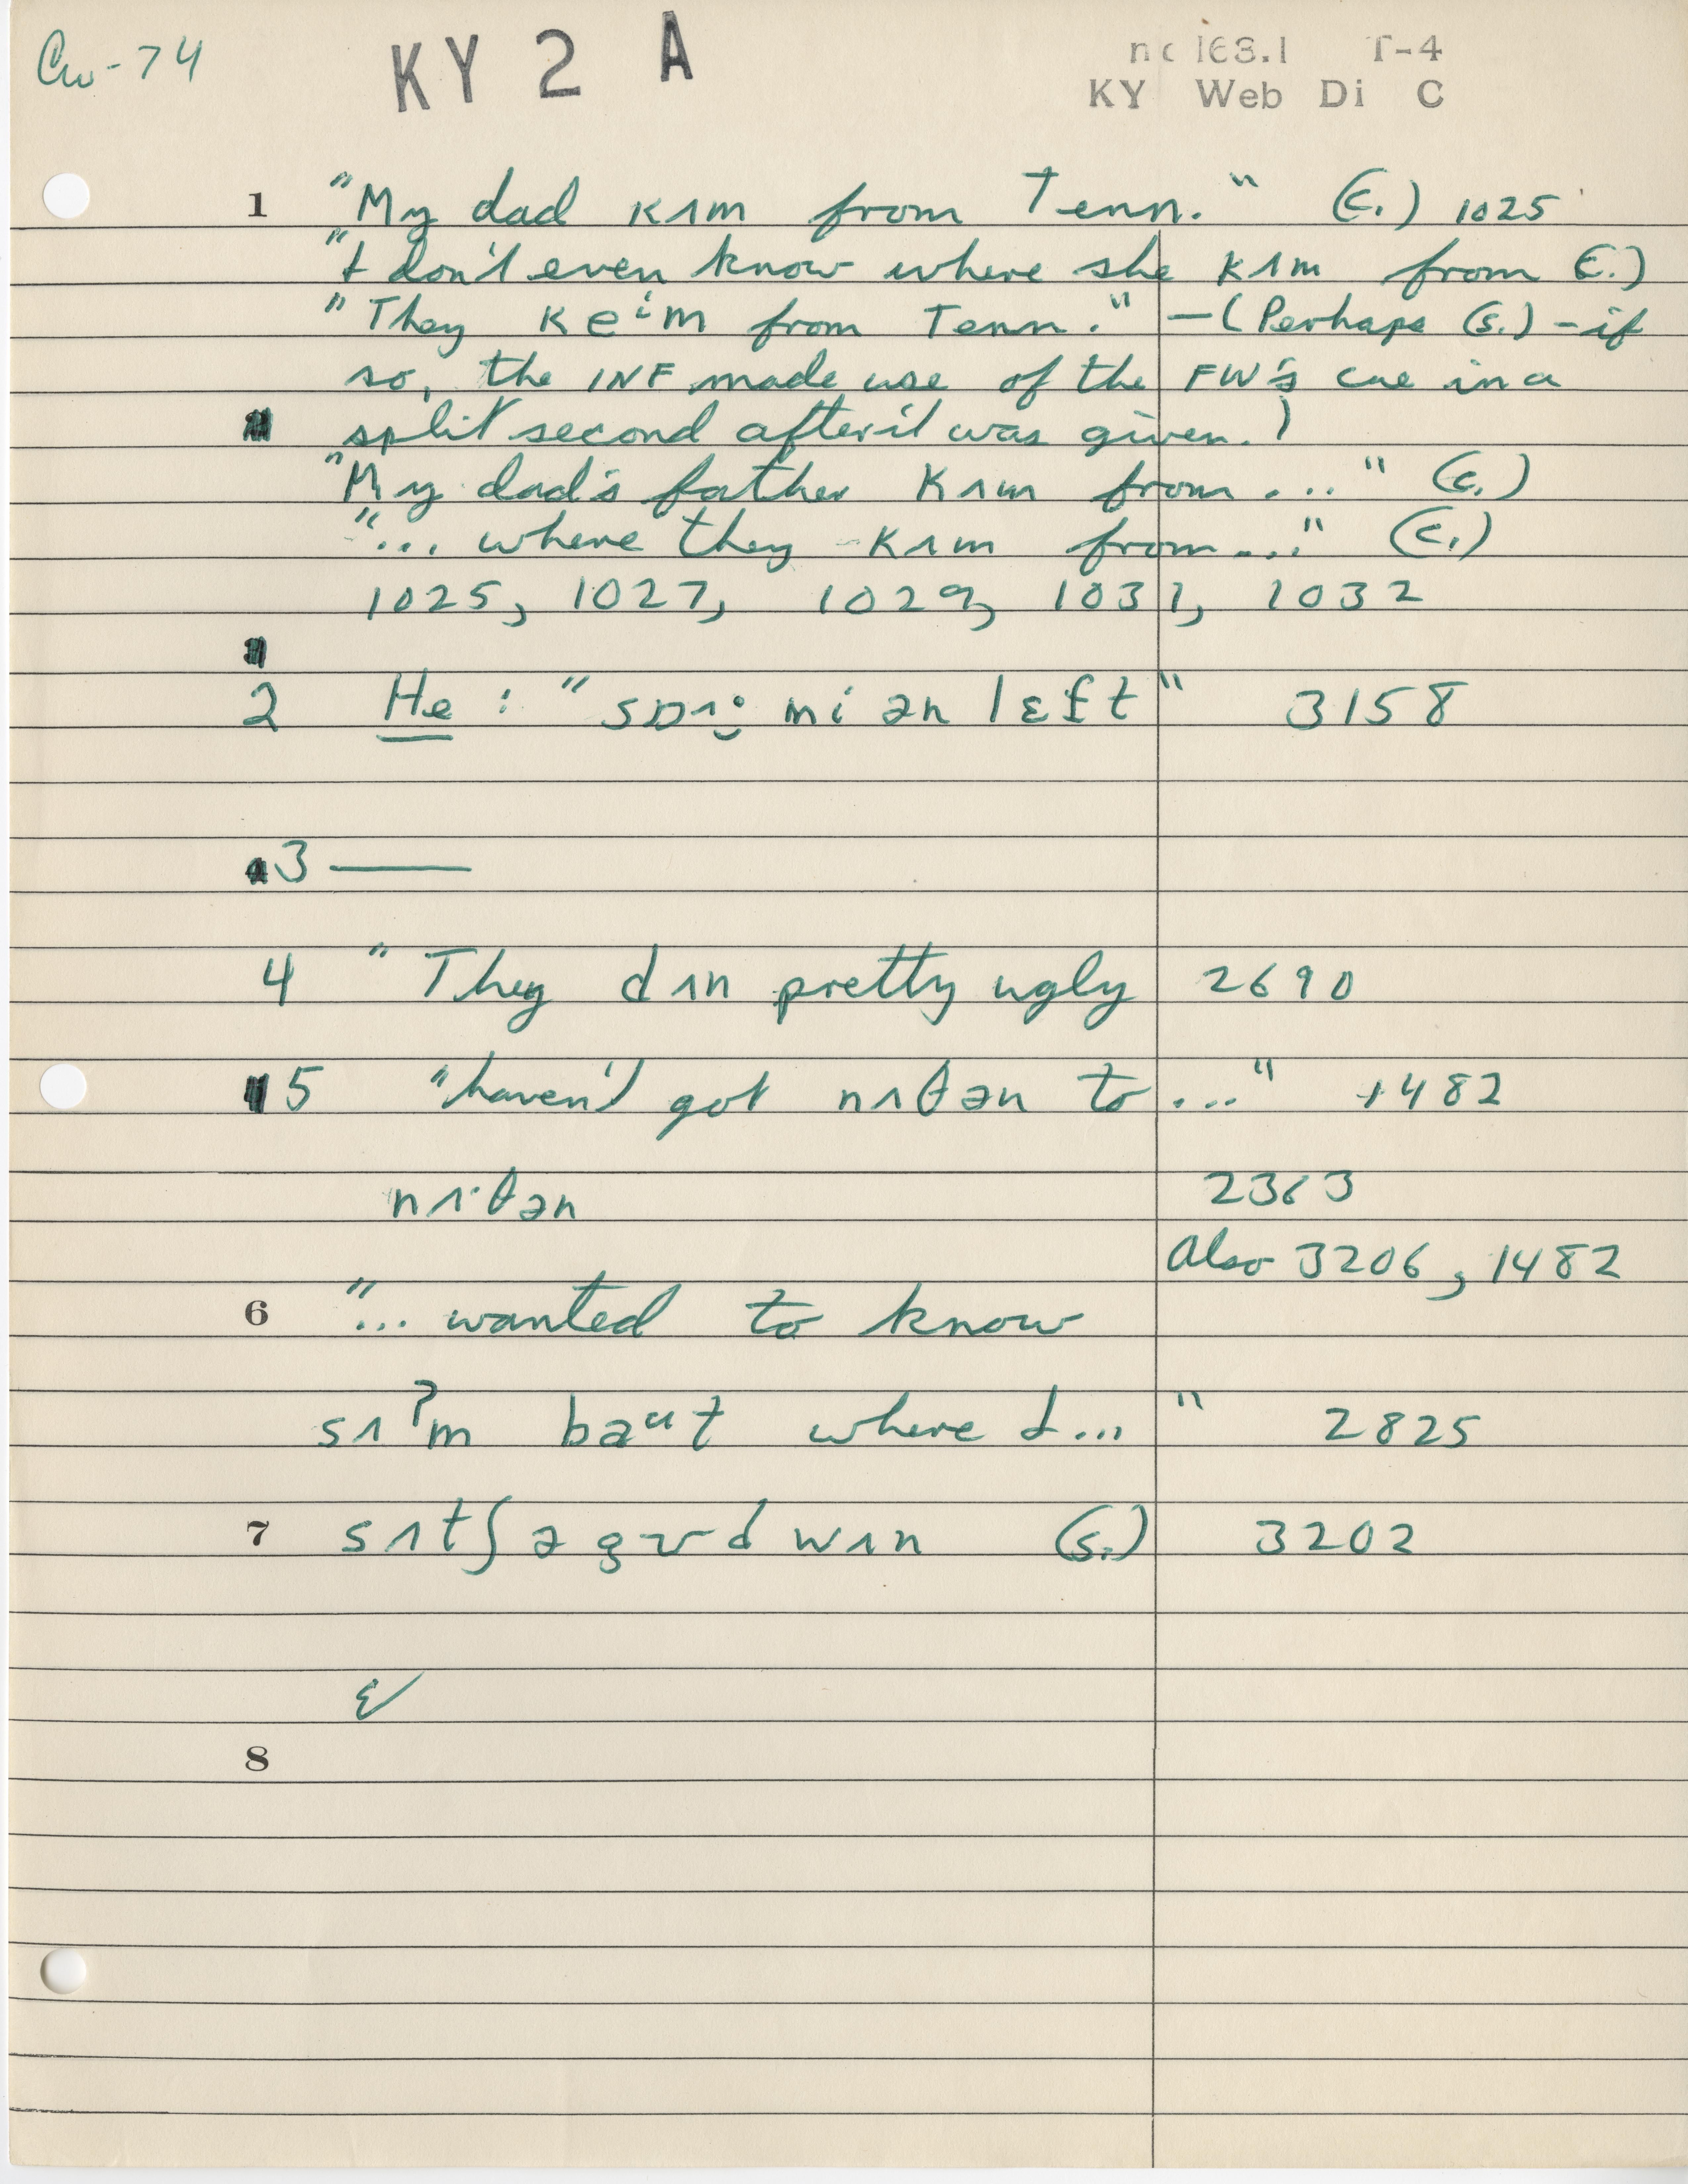 Cw-74
KY 2 A
nc 163.1 T-4
KY Web Di C
1 "My dad kʌm from Tenn." (c.) 1025
"I don't even know where she kʌm from (c.)
"They keⁱm from Tenn." —(Perhaps (s.) - if
so, the INF made use of the FW's cue in a
split second after it was given.)
"My dad's father kʌm from..." (c.)
"... where they kʌm from..." (c.)
1025, 1027, 1029, 1031, 1032
2 He: " mi ən lɛft" 3158
3 —
4 "They dʌn pretty ugly 2690
5 "haven't got nʌθən to ..." 1482
nʌ·θən 2363
Also 3206, 1482
6 "... wanted to know
sʌʔm baᵘt where I..." 2825
7 sʌtʃ ə gʊd wʌn (s.) 3202
ɛ✓
8